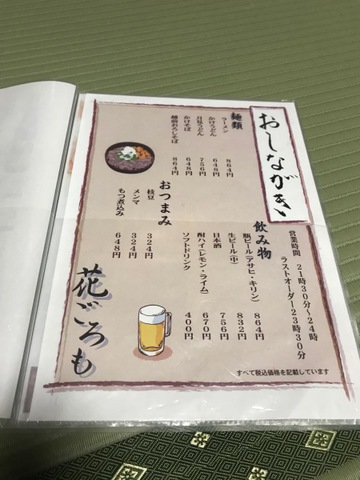 おしながき
麺類
ラーメン 864円
かけうどん 648円
月見うどん 756円
かけそば 648円
越前おろしそば 864円
おつまみ
枝豆 324円
メンマ 324円
もつ煮込み 648円
飲み物
瓶ビール(アサヒ・キリン) 864円
生ビール(中) 832円
日本酒 756円
酎ハイ(レモン・ライム) 670円
ソフトドリンク 400円
営業時間 21時30分~24時
ラストオーダー23時30分
花ごろも
すべて税込価格を記載しています